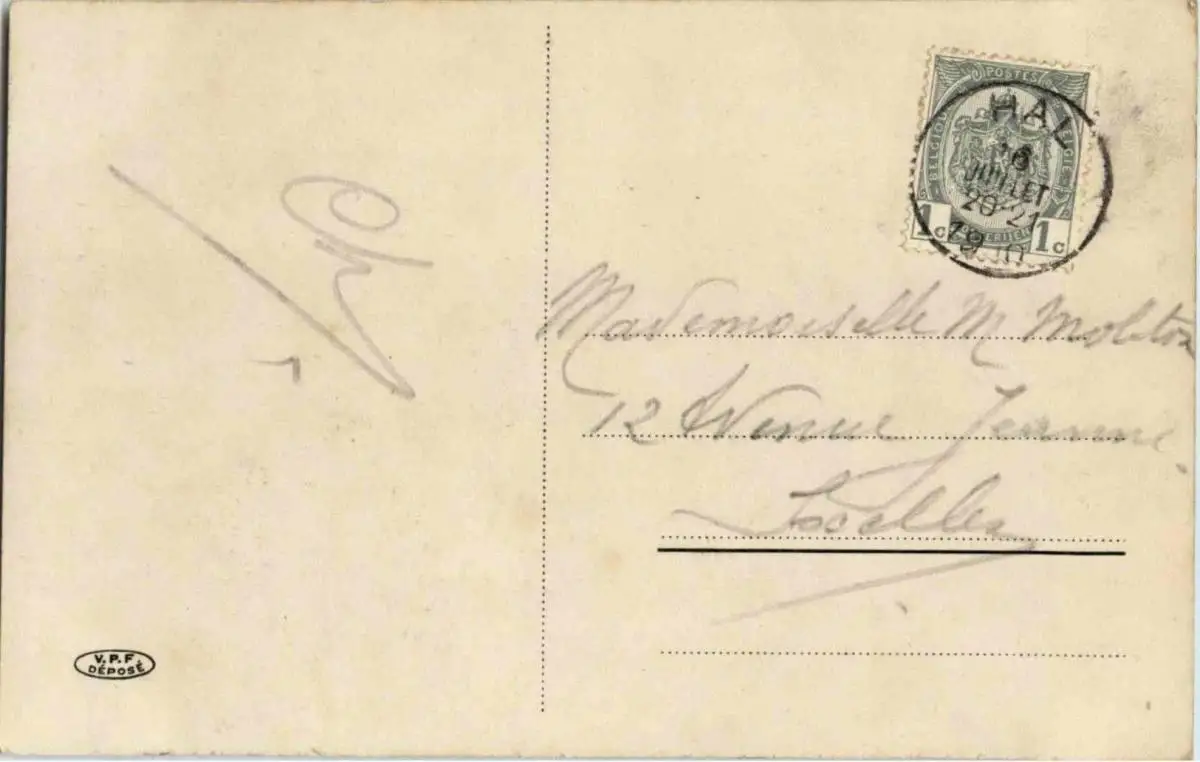 POSTES
BELGIQUE BELGIE
1c 1c
HAL
16
JUILLET
20-21
1910
Mademoiselle M Molston
12 Avenue Jeanne
Ixelles
V.P.F
DÉPOSÉ